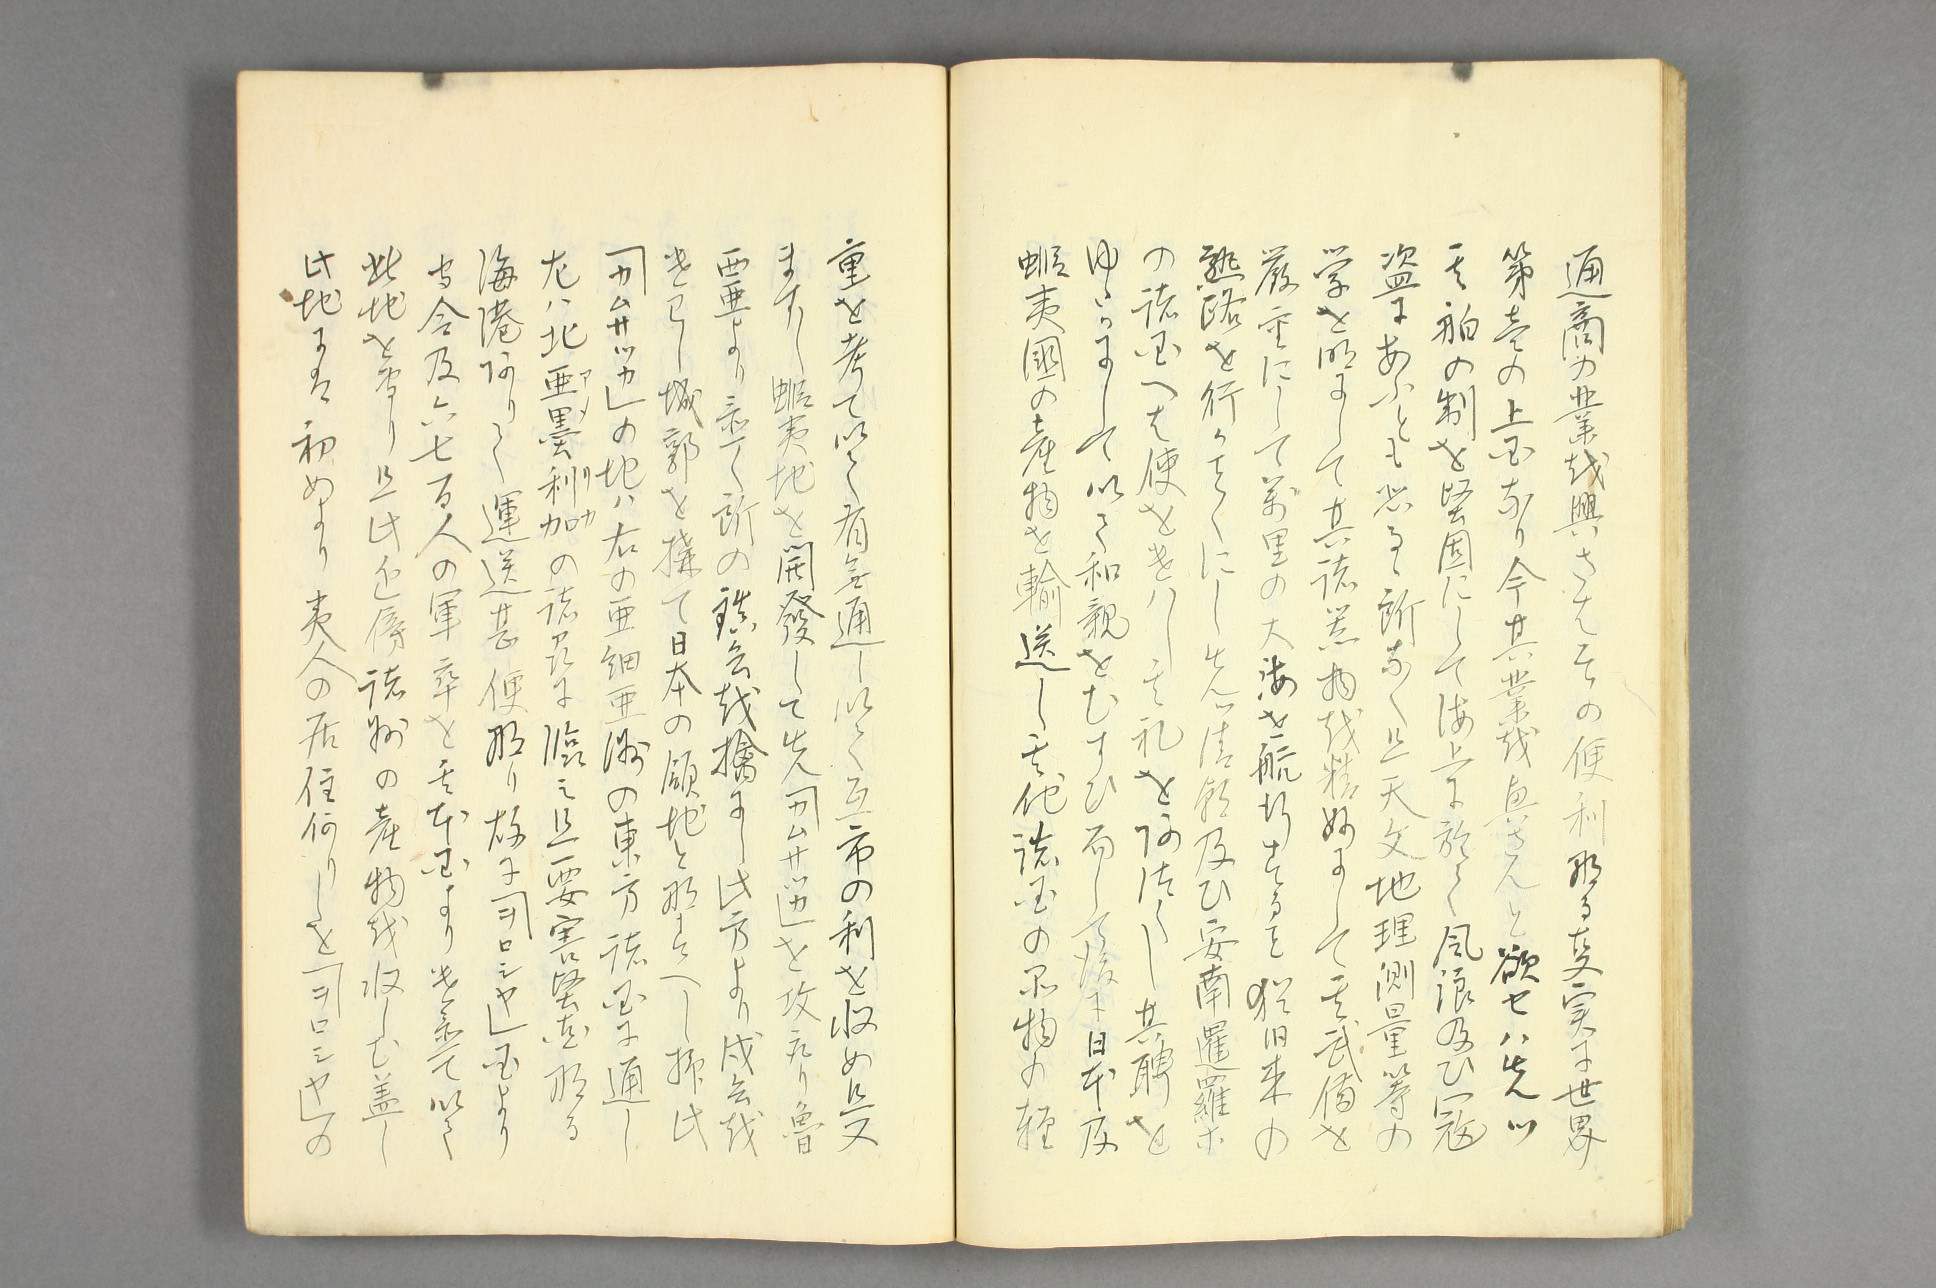 通商の業越興さはその便利那る支実に世界
第壱の上国なり今其業越興さんと欲セハ先ツ
其舶の制を堅固にして海上に於て風浪及ひ寇
盗にあふとも恐るゝ所なく且天文地理測量等の
学を明にして其諸器物越精妙にして其武備を
厳重にして万里の大海を航行するを猶旧来の
熟路を行くことくにし先清朝及ひ安南暹羅等
の諸国へも使をさはし其礼を阿法くし其聘を
ゆたかにして以て和親をむすひ而して後に日本及
蝦夷國の産物を輸送し其他諸国の品物の軽
重を考て以て有無通し以て互市の利を収め且又
ますし蝦夷地を開發して先「カムサツカ」を攻取り魯
西亜より置く所の鎮兵越擒にし此方より戍兵越
遣し城郭を構て日本の領地と那すへし抑此
「カムサツカ」の地ハ右の亜細亜洲の東方諸国に通し
左ハ北亜墨利加の諸島に臨之且要害堅固那る
海港阿りて運送甚便那り故に「ヲロシヤ」国より
当今及六七百人の軍卒を其本国より遣置て以て
此地を守り且此近傍諸州の産物越収しむ盖し
此地にハ初めより夷人の居住何りしを「ヲロシヤ」の